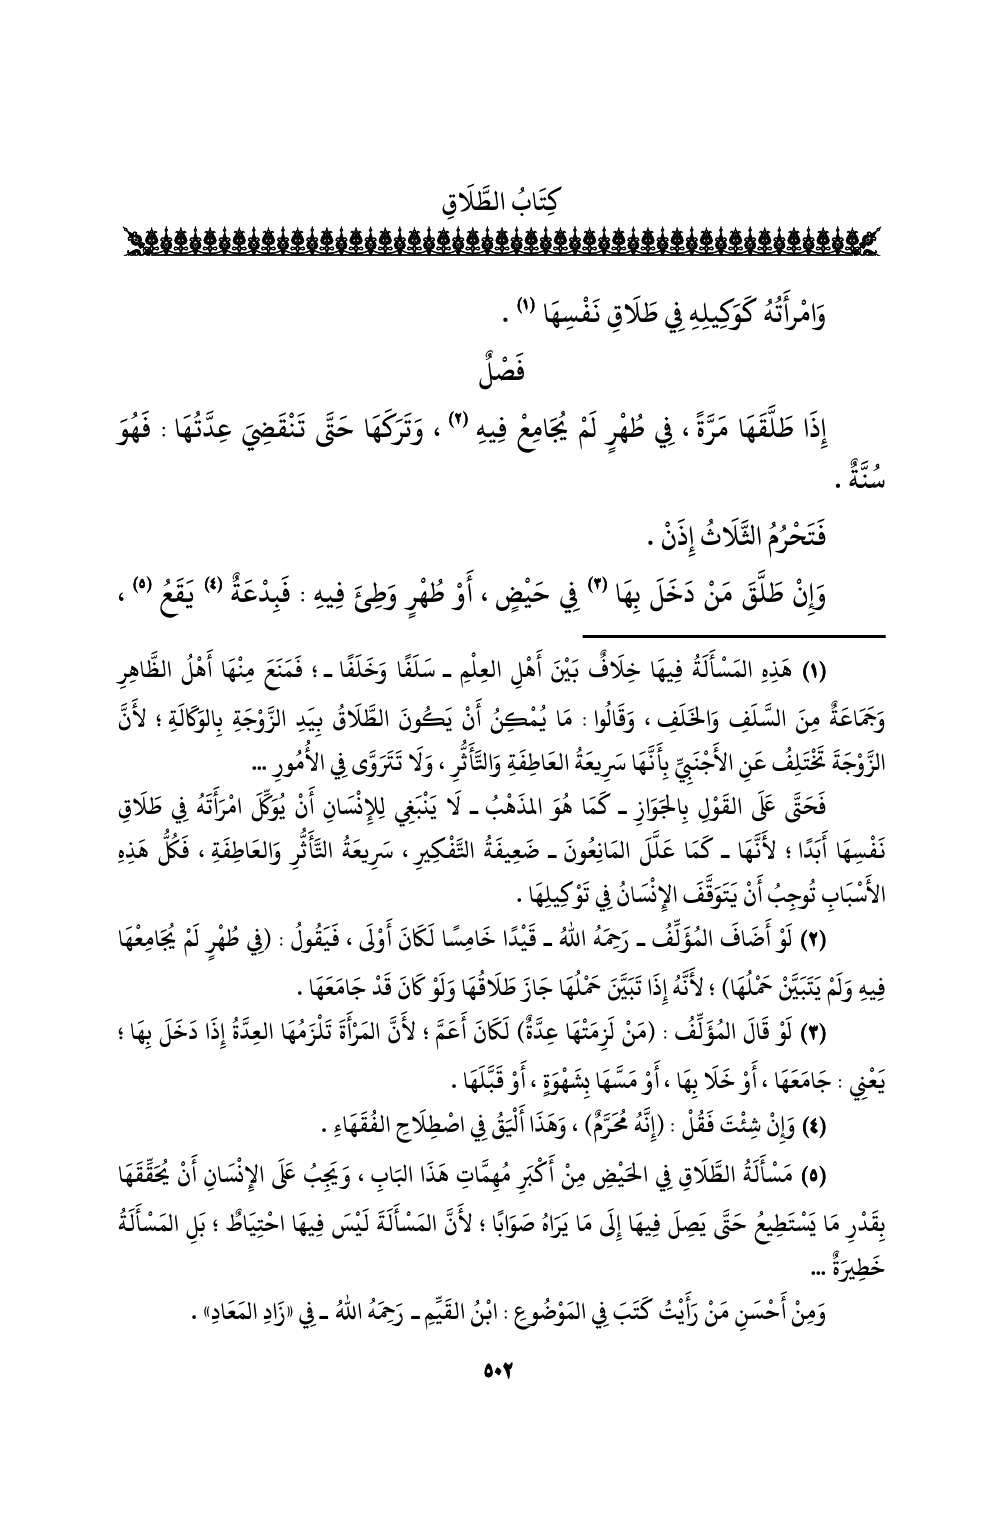 كِتَابُ الطَّلَاقِ
وَامْرأَتُهُ كَوَكِيلِهِ فِي طَلَاقِ نَفْسِهَا (١) .
فَصْلٌ
إِذَا طَلَّقَهَا مَرَّةً ، فِي طُهْرٍ لَمْ يُجَامِعْ فِيهِ (٢) ، وَتَرَكَهَا حَتَّى تَنْقَضِيَ عِدَّتُهَا : فَهُوَ
سُنَّةٌ .
فَتَحْرُمُ الثَّلَاثُ إِذَنْ .
وَإِنْ طَلَّقَ مَنْ دَخَلَ بِهَا (٣) فِي حَيْضٍ ، أَوْ طُهْرٍ وَطِئَ فِيهِ : فَبِدْعَةٌ (٤) يَقَعُ (٥) ،
(١) هَذِهِ المَسْأَلَةُ فِيهَا خِلَافٌ بَيْنَ أَهْلِ العِلْمِ ـ سَلَفًا وَخَلَفًا ـ ؛ فَمَنَعَ مِنْهَا أَهْلُ الظَّاهِرِ
وَجَمَاعَةٌ مِنَ السَّلَفِ وَالخَلَفِ ، وَقَالُوا : مَا يُمْكِنُ أَنْ يَكُونَ الطَّلَاقُ بِيَدِ الزَّوْجَةِ بِالوَكَالَةِ ؛ لأَنَّ
الزَّوْجَةَ تَخْتَلِفُ عَنِ الأَجْنَبِيِّ بِأَنَّهَا سَرِيعَةُ العَاطِفَةِ وَالتَّأَثُّرِ ، وَلَا تَتَرَوَّى فِي الأُمُورِ ...
فَحَتَّى عَلَى القَوْلِ بِالجَوَازِ ـ كَمَا هُوَ المذْهَبُ ـ لَا يَنْبَغِي لِلإِنْسَانِ أَنْ يُوَكِّلَ امْرَأَتَهُ فِي طَلَاقِ
نَفْسِهَا أَبَدًا ؛ لأَنَّهَا ـ كَمَا عَلَّلَ المَانِعُونَ ـ ضَعِيفَةُ التَّفْكِيرِ ، سَرِيعَةُ التَّأَثُّرِ وَالعَاطِفَةِ ، فَكُلُّ هَذِهِ
الأَسْبَابِ تُوجِبُ أَنْ يَتَوَقَّفَ الإِنْسَانُ فِي تَوْكِيلِهَا .
(٢) لَوْ أَضَافَ المُؤَلِّفُ ـ رَحِمَهُ اللهُ ـ قَيْدًا خَامِسًا لَكَانَ أَوْلَى ، فَيَقُولُ : (فِي طُهْرٍ لَمْ يُجَامِعْهَا
فِيهِ وَلَمْ يَتَبَيَّنْ حَمْلُهَا) ؛ لأَنَّهُ إِذَا تَبَيَّنَ حَمْلُهَا جَازَ طَلَاقُهَا وَلَوْ كَانَ قَدْ جَامَعَهَا .
(٣) لَوْ قَالَ المُؤَلِّفُ : (مَنْ لَزِمَتْهَا عِدَّةٌ) لَكَانَ أَعَمَّ ؛ لأَنَّ المَرْأَةَ تَلْزَمُهَا العِدَّةُ إِذَا دَخَلَ بِهَا ؛
يَعْنِي : جَامَعَهَا ، أَوْ خَلَا بِهَا ، أَوْ مَسَّهَا بِشَهْوَةٍ ، أَوْ قَبَّلَهَا .
(٤) وَإِنْ شِئْتَ فَقُلْ : (إِنَّهُ مُحَرَّمٌ) ، وَهَذَا أَلْيَقُ فِي اصْطِلَاحِ الفُقَهَاءِ .
(٥) مَسْأَلَةُ الطَّلَاقِ فِي الحَيْضِ مِنْ أَكْبَرِ مُهِمَّاتِ هَذَا البَابِ ، وَيَجِبُ عَلَى الإِنْسَانِ أَنْ يُحَقِّقَهَا
بِقَدْرِ مَا يَسْتَطِيعُ حَتَّى يَصِلَ فِيهَا إِلَى مَا يَرَاهُ صَوَابًا ؛ لأَنَّ المَسْأَلَةَ لَيْسَ فِيهَا احْتِيَاطٌ ؛ بَلِ المَسْأَلَةُ
خَطِيرَةٌ ...
وَمِنْ أَحْسَنِ مَنْ رَأَيْتُ كَتَبَ فِي المَوْضُوعِ : ابْنُ القَيِّمِ ـ رَحِمَهُ اللهُ ـ فِي «زَادِ المَعَادِ» .
٥٠٢